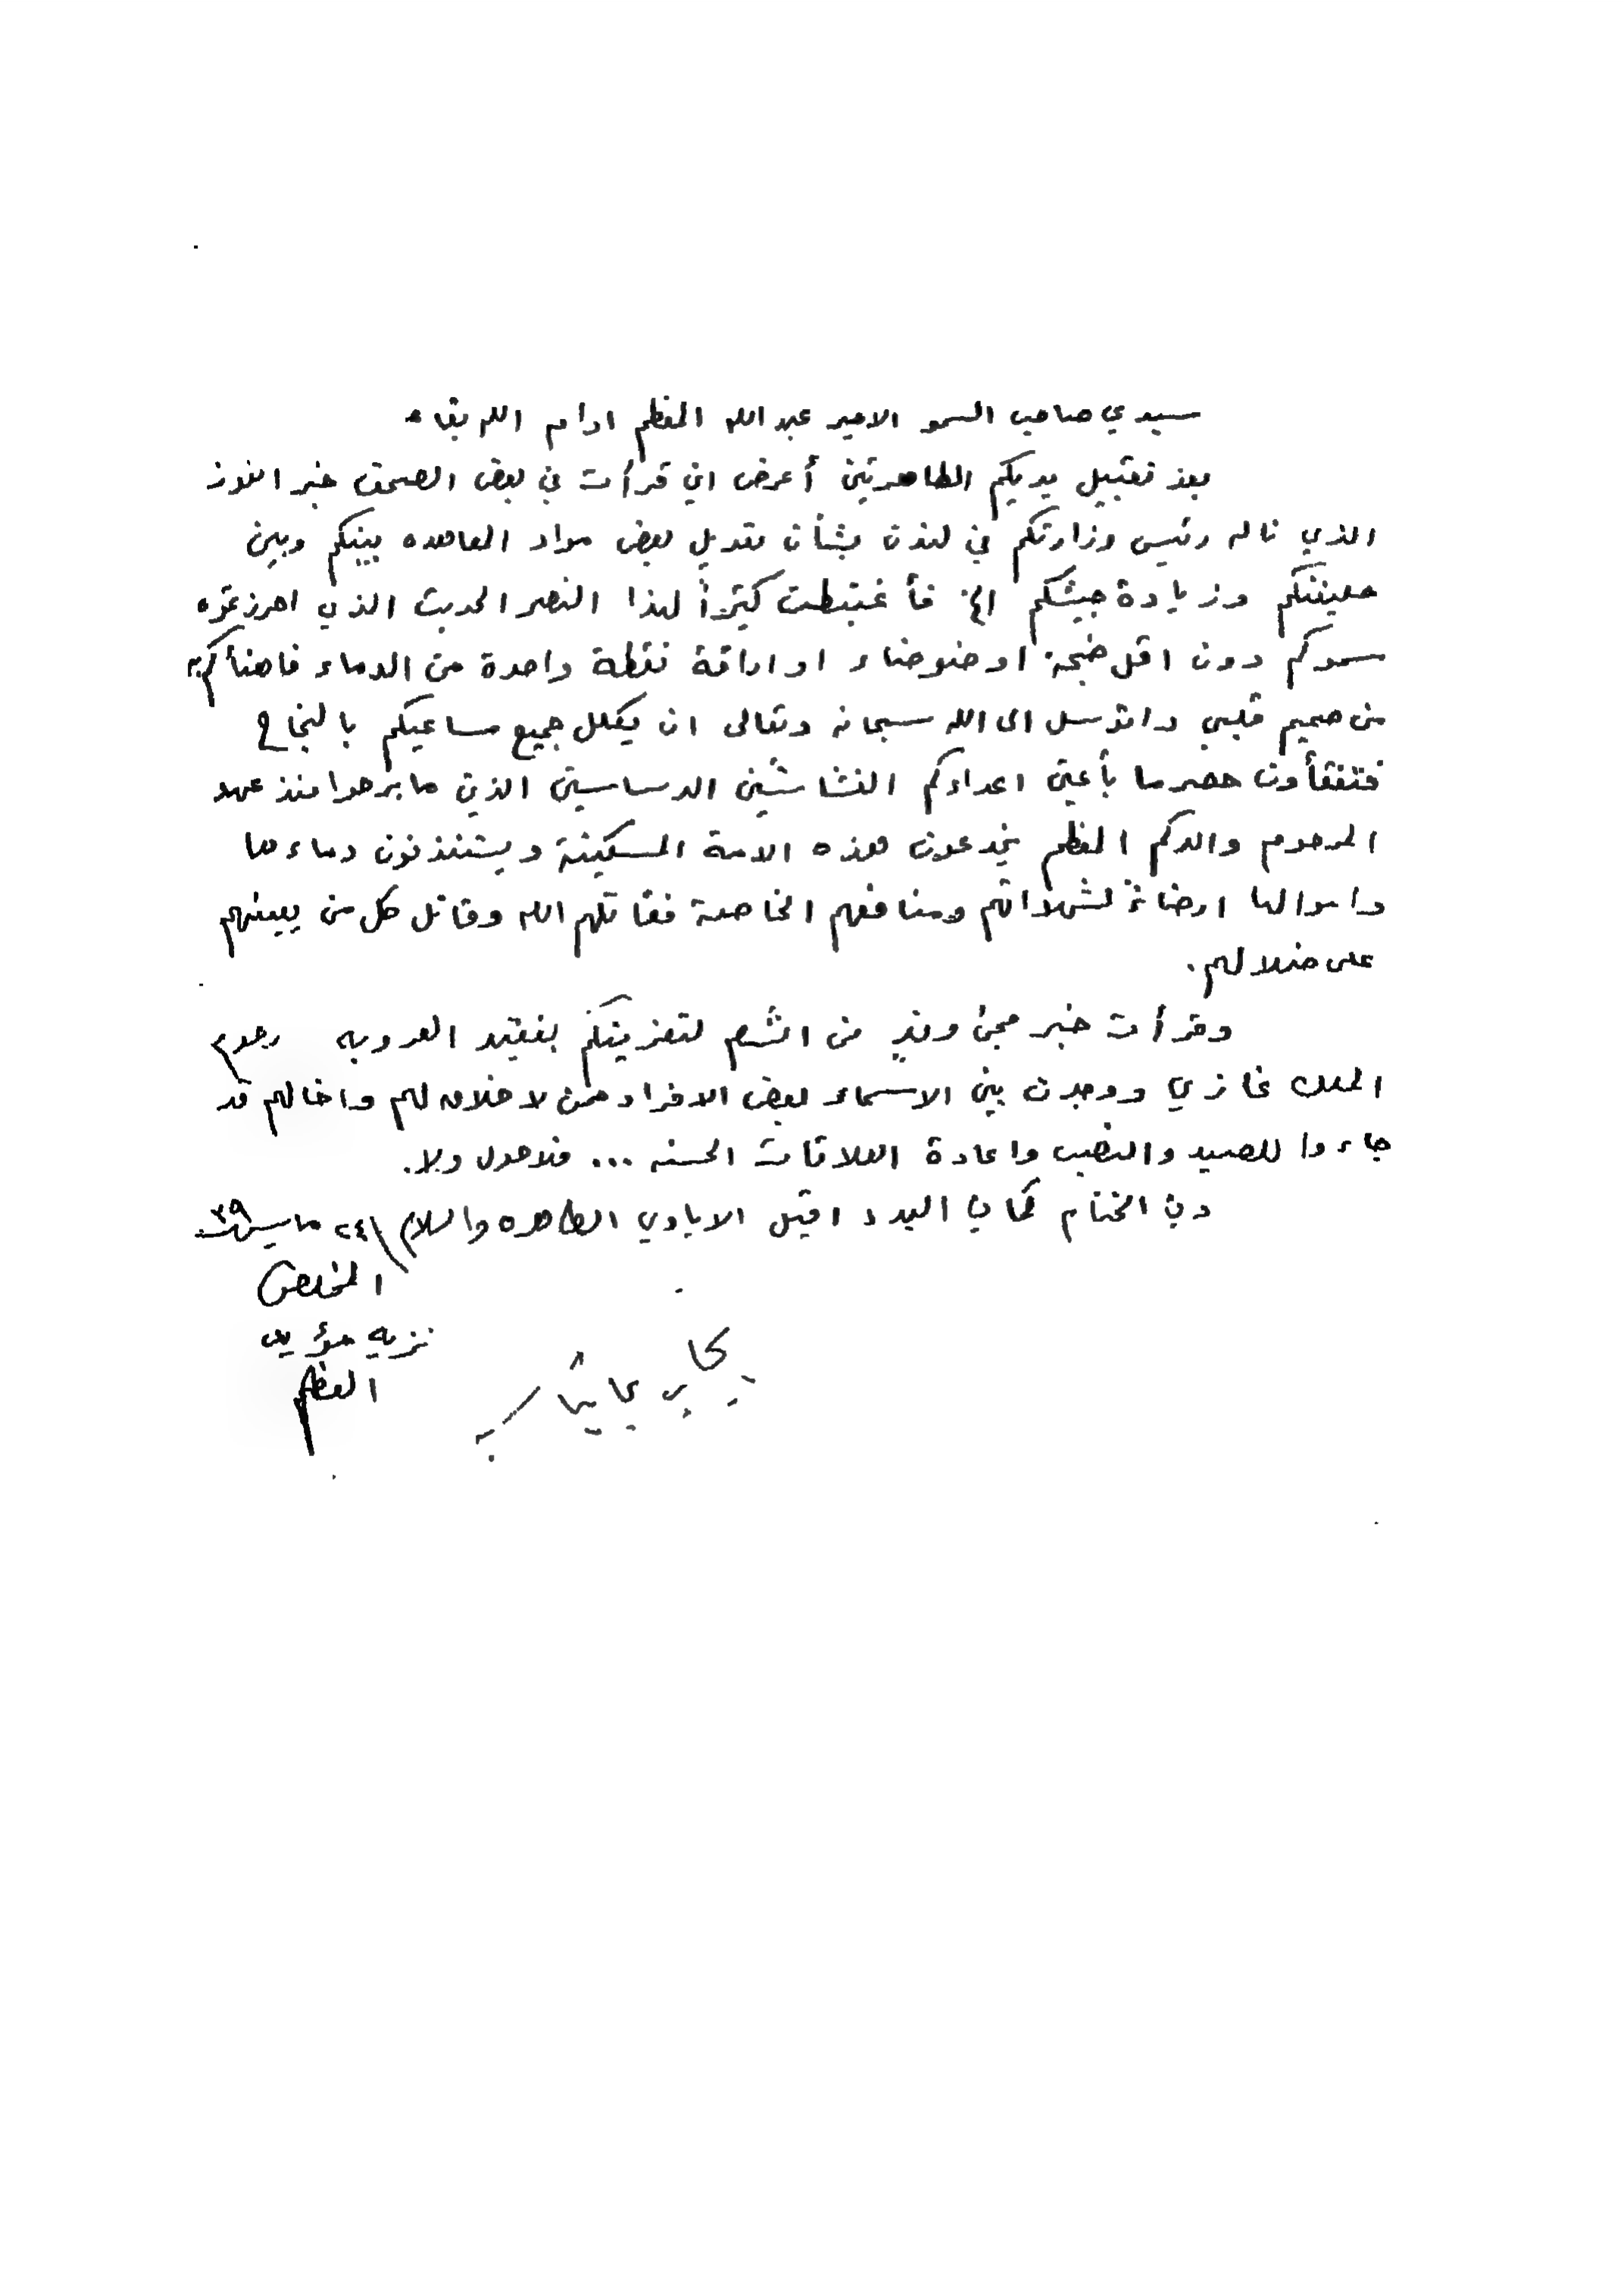 سيدي صاحب السمو الامير عبد الله المعظم ادام الله بقاءه
بعد تقبيل يديكم الطاهرتين أعرض اني قرأت في بعض الصحف خبر الفوز
الذي ناله رئيس وزارتكم في لندن بشأن تعديل بعض مواد المعاهده بينكم وبين
حليفتكم وزيادة جيشكم الخ فأغتبطت كثيراً لهذا النصر الحديث الذي احرزتموه
سموكم دون اقل ضجة او ضوضاء او اراقة نقطة واحدة من الدماء فاهنأكم به
من صميم قلبي واتوسل الى الله سبحانه وتعالى ان يكلل جميع مساعيكم بالنجاح
فتفقأون حصرما بأعين اعداءكم الغشاشين الدساسين الذين ما برحوا منذ عهد
المرحوم والدكم المعظم يخدعون هذه الامة المسكينة ويستنزفون دماءها
واموالها ارضاءً لشهواتهم ومنافعهم الخاصة فقاتلهم الله وقاتل كل من يعينهم
على ضلالهم.
وقرأت خبر مجئ وفدٍ من الشام لتعزيتكم بفقيد العروبه المرحوم
الملك غازي ووجدت بين الاسماء بعض الافراد ممن لا خلاق لهم واخالهم قد
جاءوا للصيد والنصب واعادة العلاقات الحسنه ... فلا حول ولا.
وفي الختام كما في البدء اقبل الايادي الطاهره والسلام ٢٤ مايس ٣٩
المخلص
نزيه مؤيد
العظم